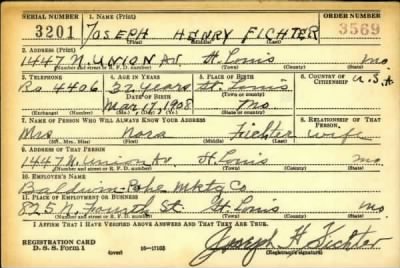 SERIAL NUMBER 1. NAME (Print) ORDER NUMBER
3201 JOSEPH HENRY FICHTER 3569
(First) (Middle) (Last)
2. ADDRESS (Print)
1447 N. UNION AV. St. Louis Mo.
(Number and street or R. F. D. number) (Town) (County) (State)
3. TELEPHONE 4. AGE IN YEARS 5. PLACE OF BIRTH 6. COUNTRY OF CITIZENSHIP
Ro 4406 32 Years St. Louis U.S.A.
DATE OF BIRTH (Town or county)
Mar. 17, 1908 Mo
(Exchange) (Number) (Mo.) (Day) (Yr.) (State or country)
7. NAME OF PERSON WHO WILL ALWAYS KNOW YOUR ADDRESS 8. RELATIONSHIP OF THAT PERSON
Mrs Nora Fichter wife
(Mr., Mrs., Miss) (First) (Middle) (Last)
9. ADDRESS OF THAT PERSON
1447 N. Union Av. St. Louis Mo.
(Number and street or R. F. D. number) (Town) (County) (State)
10. EMPLOYER'S NAME
Mktg Co.
11. PLACE OF EMPLOYMENT OR BUSINESS
825 N. Fourth St St. Louis Mo.
(Number and street or R. F. D. number) (Town) (County) (State)
I AFFIRM THAT I HAVE VERIFIED ABOVE ANSWERS AND THAT THEY ARE TRUE.
REGISTRATION CARD
D. S. S. Form 1 (over) Joseph H Fichter
(Registrant's signature)